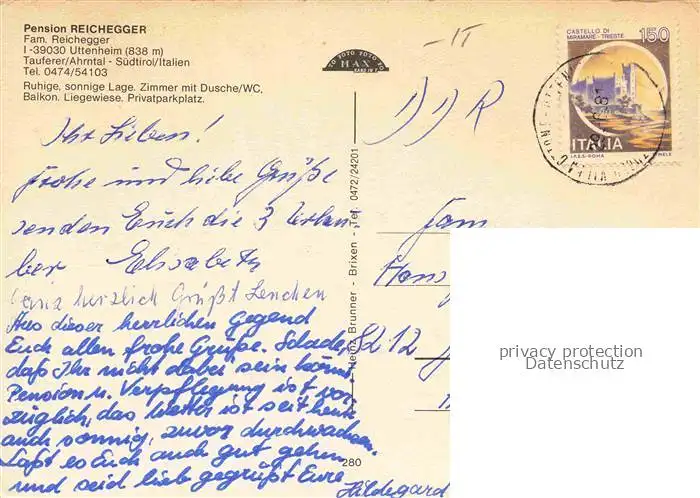 Pension REICHEGGER
Fam. Reichegger
I -39030 Uttenheim (838 m)
Tauferer/Ahrntal - Südtirol/Italien
Tel. 0474/54103
Ruhige, sonnige Lage. Zimmer mit Dusche/WC,
Balkon. Liegewiese. Privatparkplatz.
FOTO FOTO FOTO
MAX
CASTELLO DI
MIRAMARE - TRIESTE
150
ITALIA
I.P.S.-ROMA
DDR
Ihr Lieben!
Frohe und liebe Grüße
senden Euch die 3 Urlau
ber Elisabeth
Ganz herzlich Grüßt Lenchen
Aus dieser herrlichen Gegend
Euch allen frohe Grüße. Schade,
daß Ihr nicht dabei sein könnt.
Pension u. Verpflegung ist vor-
züglich, das Wetter ist seit heute
auch sonnig, zuvor durchwachsen.
Laßt es Euch auch gut gehen
und seid lieb gegrüßt Eure
Hildegard
Fam
Hans
8212
Heinz Brunner - Brixen - Tel. 0472/24201
280
privacy protection
Datenschutz